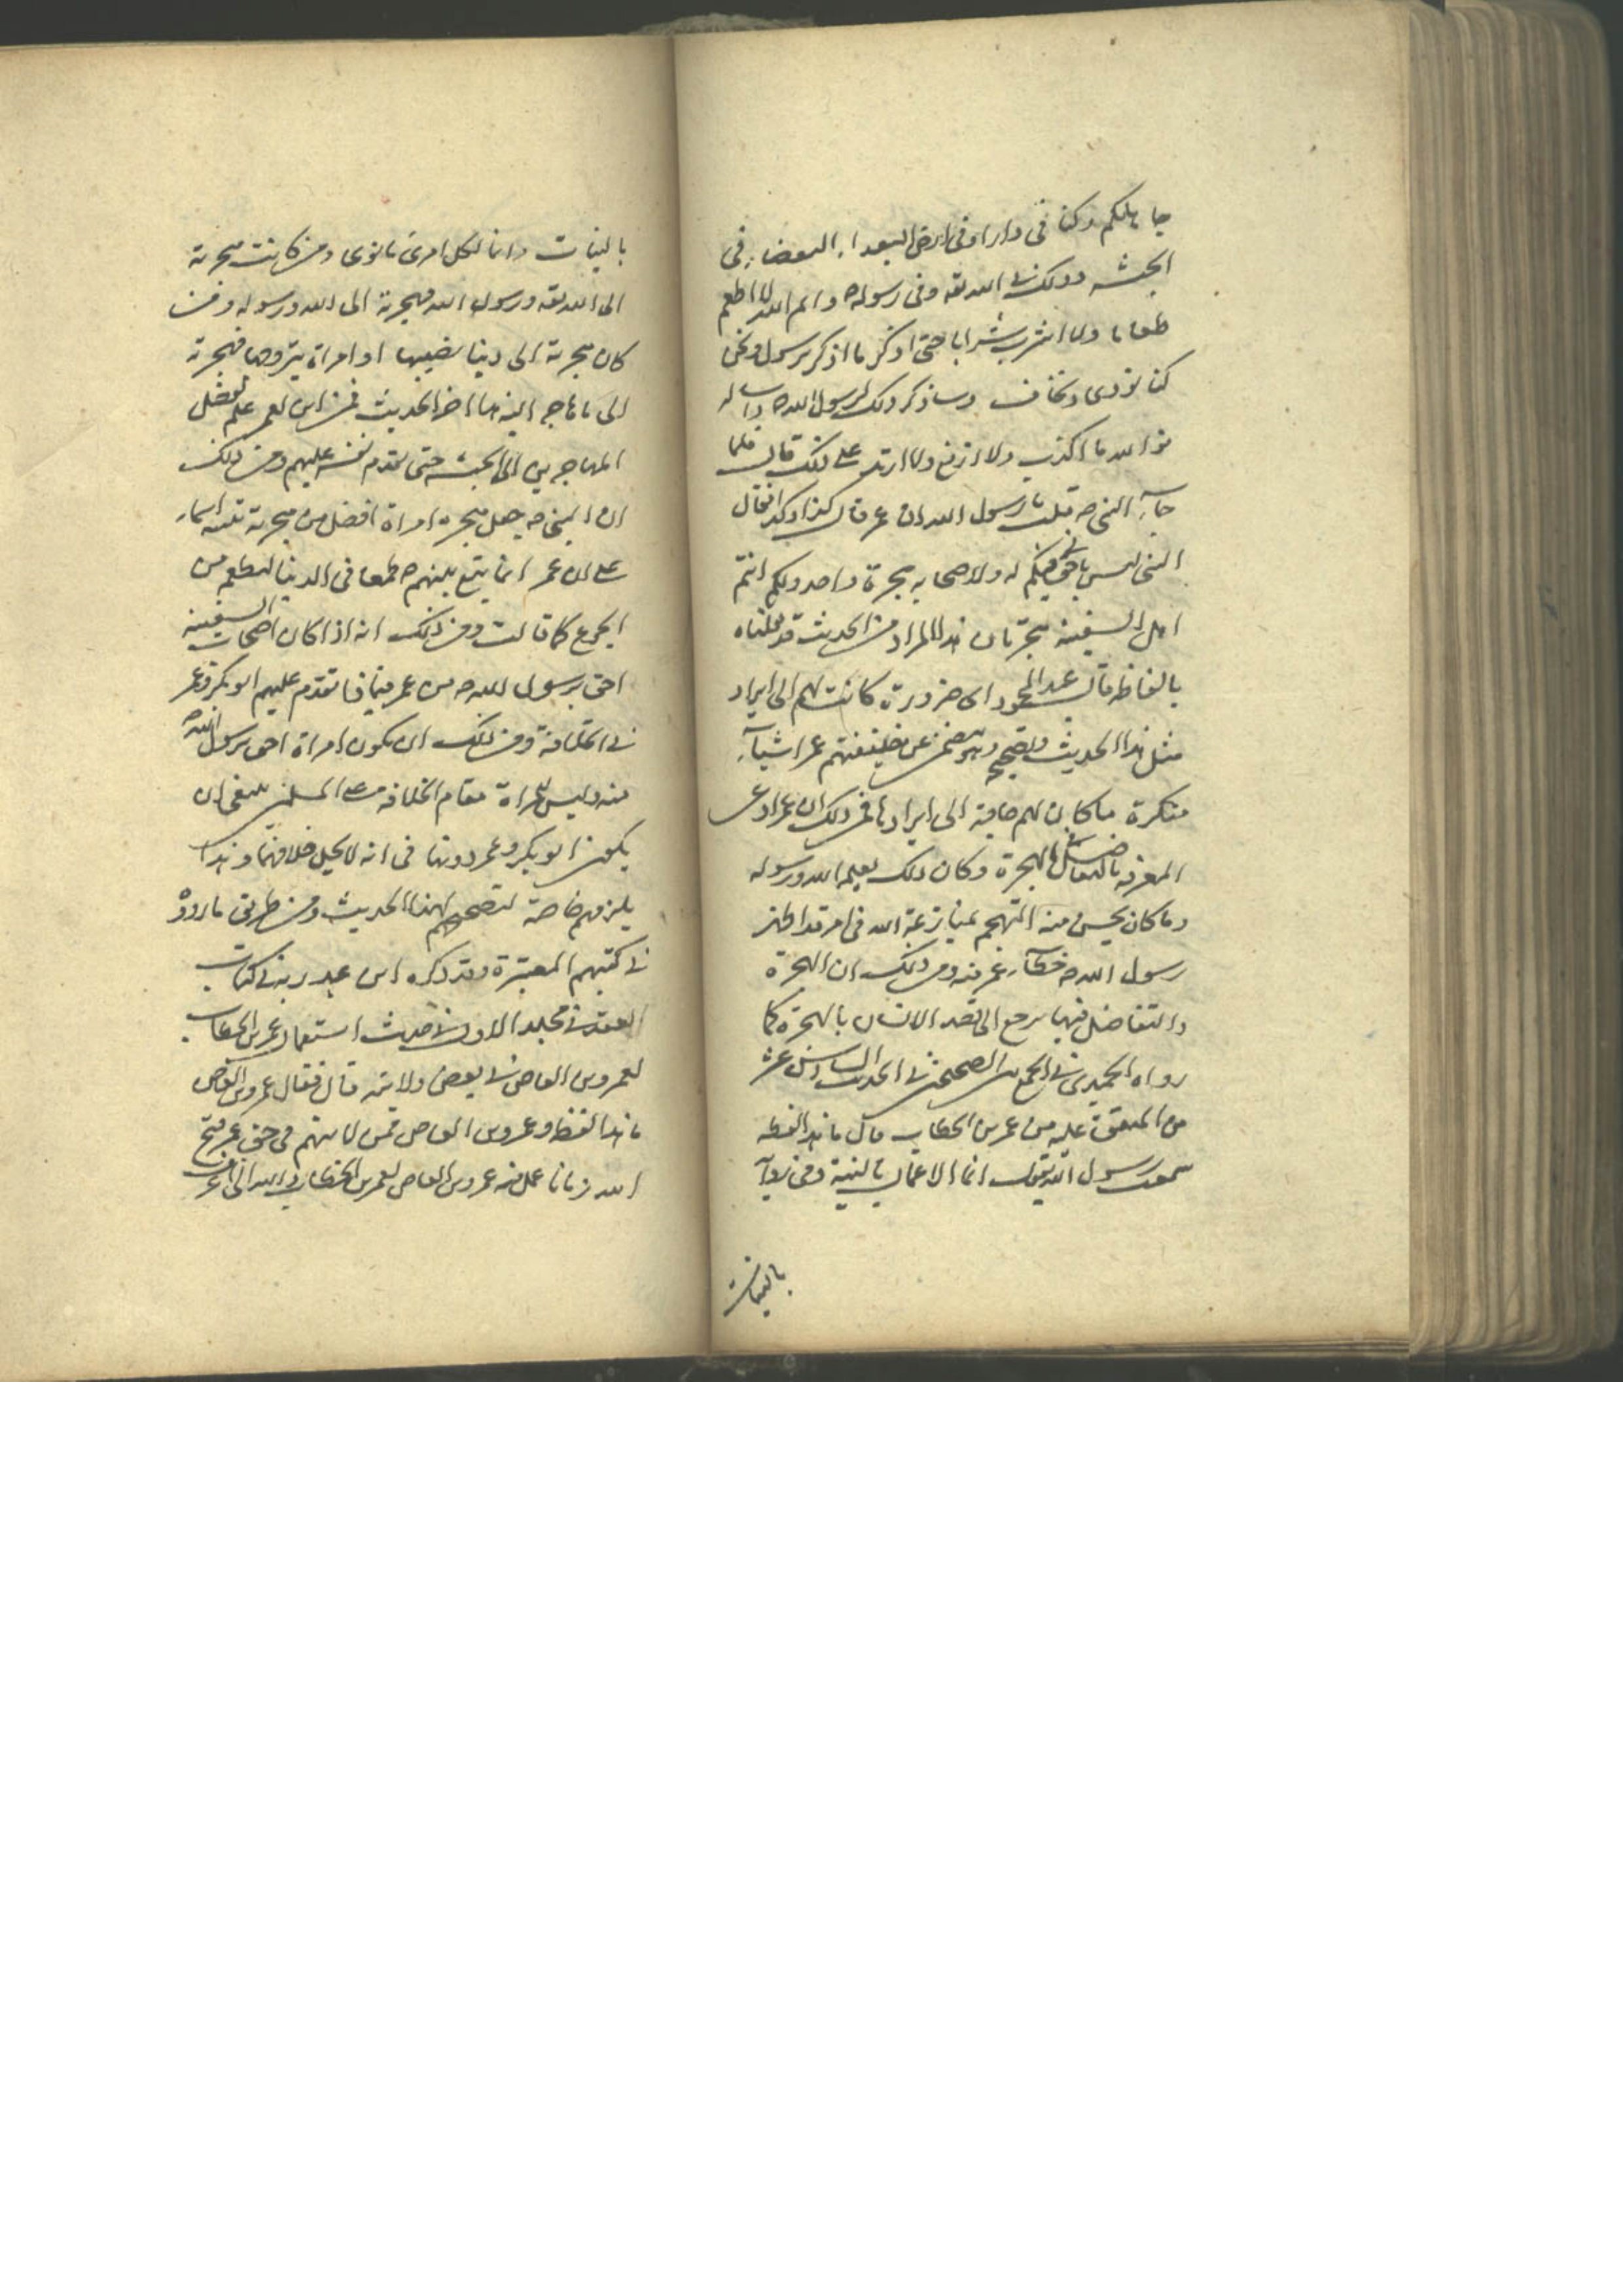 جاهلكم وكنا في دار او في ارض البعداء البغضاء في
الحبشة وذلك في الله تعه وفي رسوله ص وايم الله لا اطعم
طعاما ولا اشرب شرابا حتى اذكر ما اذكر لرسول ونحن
كنا نؤذى ونخاف وساذكر ذلك لرسول الله ص واساله
فو الله ما اكذب ولا ازيغ ولا ازيد على ذلك قال فلما
جاء النبي ص قلت يا رسول الله ان عمر قال كذا وكذا فقال
النبي ليس باحق بي منكم له ولاصحابه هجرة واحد ولكم انتم
اهل السفينة هجرتان هذا المراد من الحديث قد نقلناه
بالفاظه قال عبد المحمود اى ضرورة كانت لهم الى ايراد
مثل هذا الحديث وتصحيحه وهو يتضمن عن خليفتهم عمر اشياء
منكرة ما كان لهم حاجة الى ايرادها فمن ذلك ان عمر ادعى
المعرفة بالتفاضل بالهجرة وكان ذلك يعلمه الله ورسوله
وما كان يحسن منه التهجم بمنازعة الله في امر قد اظهر
رسول الله ص خطاء عمر فيه ومن ذلك ان الهجرة
والتفاضل فيها يرجع الى قصد الانسان بالهجرة كما
رواه الحميدي في الجمع بين الصحيحين في الحديث السادس عشر
من المتفق عليه من عمر بن الخطاب قال ما هذا لفظه
سمعت رسول الله يقول انما الاعمال بالنية وفي رواية
بالنيات
بالنيات وانما لكل امرئ ما نوى ومن كانت هجرته
الى الله تعه ورسول الله فهجرته الى الله ورسوله ومن
كان هجرته الى دنيا يصيبها او امراة يتزوجها فهجرته
الى ما هاجر اليه هذا اخر الحديث فمن اين لعمر علم تفضل
المهاجرين الى الحبشة حتى تقدم نفسه عليهم ومن ذلك
ان النبي ص جعل هجرة امراة افضل من هجرته تنبيه اسماء
على ان عمر انما يتبع نبيهم ص طمعا في الدنيا ليطعم من
الجوع كما قالت ومن ذلك انه اذا كان اصحاب السفينة
احق برسول الله ص من عمر فلماذا تقدم عليهم ابو بكر وعمر
في الخلافة ومن ذلك ان يكون امراة احق برسول الله ص
منه وليس للمراة مقام الخلافة على المسلمين ينبغي ان
يكون ابو بكر وعمر دونها في انه لا يحل خلافتهما وهذا
يلزمهم خاصة لتصحيحهم لهذا الحديث ومن طريق ما رووه
في كتبهم المعتبرة وقد ذكره ابن عبد ربه في كتاب
العقد في مجلد الاول في حديث استعمال عمر بن الخطاب
لعمرو بن العاص في بعض ولايته قال فقال عمرو بن العاص
ما هذا لفظه وعمرو بن العاص ممن لا يتهم في حق عمر قبح
الله زمانا عمل فيه عمرو بن العاص لعمر بن الخطاب والله انى لاعرف